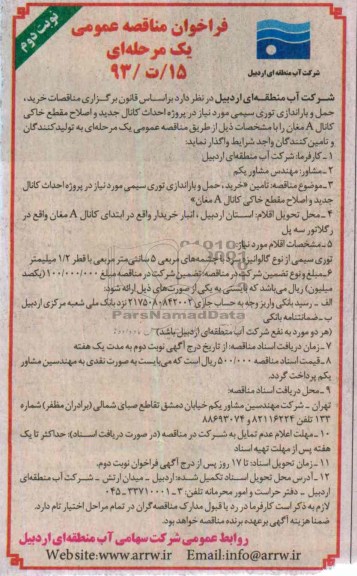 نوبت دوم
فراخوان مناقصه عمومی
یک مرحله‌ای
۱۵/ت/۹۳
شرکت آب منطقه‌ای اردبیل
شرکت آب منطقه‌ای اردبیل در نظر دارد براساس قانون برگزاری مناقصات خرید،
حمل و باراندازی توری سیمی مورد نیاز در پروژه احداث کانال جدید و اصلاح مقطع خاکی
کانال A مغان را با مشخصات ذیل از طریق مناقصه عمومی یک مرحله‌ای به تولیدکنندگان
و تامین کنندگان واجد شرایط واگذار نماید:
۱-کارفرما: شرکت آب منطقه‌ای اردبیل
۲-مشاور: مهندس مشاور یکم
۳-موضوع مناقصه: تامین «خرید، حمل و باراندازی توری سیمی مورد نیاز در پروژه احداث کانال
جدید و اصلاح مقطع خاکی کانال A مغان»
۴-محل تحویل اقلام: استان اردبیل، انبار خریدار واقع در ابتدای کانال A مغان واقع در
رگلاتور سه پل
۵-مشخصات اقلام مورد نیاز
توری سیمی از نوع گالوانیزه با چشمه‌های مربعی ۵ سانتی‌متر مربعی با قطر ۱/۲ میلیمتر
۶-مبلغ و نوع تضمین شرکت در مناقصه: تضمین شرکت در مناقصه مبلغ ۱۰۰/۰۰۰/۰۰۰ (یکصد
میلیون) ریال می‌باشد که بایستی به یکی از صورت‌های ذیل ارائه شود:
الف - رسید بانکی واریز وجه به حساب جاری ۲۱۷۵۰۸۰۸۴۲۰۰۲ نزد بانک ملی شعبه مرکزی اردبیل
ب-ضمانتنامه بانکی
(هر دو مورد به نفع شرکت آب منطقه‌ای اردبیل باشد)
۷-زمان دریافت اسناد مناقصه: از تاریخ درج آگهی نوبت دوم به مدت یک هفته
۸-قیمت اسناد مناقصه ۵۰۰/۰۰۰ ریال است که می‌بایست به صورت نقدی به مهندسین مشاور
یکم پرداخت گردد.
۹-محل دریافت اسناد مناقصه:
تهران - شرکت مهندسین مشاور یکم خیابان دمشق تقاطع صبای شمالی (برادران مظفر) شماره
۱۳۳ تلفن ۸۲۱۱۶۲۲۴ و ۸۸۶۹۳۰۷۴
۱۰-مهلت اعلام عدم تمایل به شرکت در مناقصه (در صورت دریافت اسناد): حداکثر تا یک
هفته پس از مهلت تهیه اسناد
۱۱-زمان تحویل اسناد: تا ۱۷ روز پس از درج آگهی فراخوان نوبت دوم.
۱۲-آدرس محل تحویل اسناد تکمیل شده: اردبیل - میدان ارتش - شرکت آب منطقه‌ای
اردبیل - دفتر حراست و امور محرمانه تلفن: ۳-۳۳۷۱۰۰۰۱-۰۴۵
لازم به ذکر است کارفرما در رد یا قبول مدارک مناقصه‌گران در تمام مراحل اختیار تام دارد.
ضمنا هزینه آگهی برعهده برنده مناقصه خواهد بود.
روابط عمومی شرکت سهامی آب منطقه‌ای اردبیل
Website:www.arrw.ir Email:info@arrw.ir
ParsNamadData